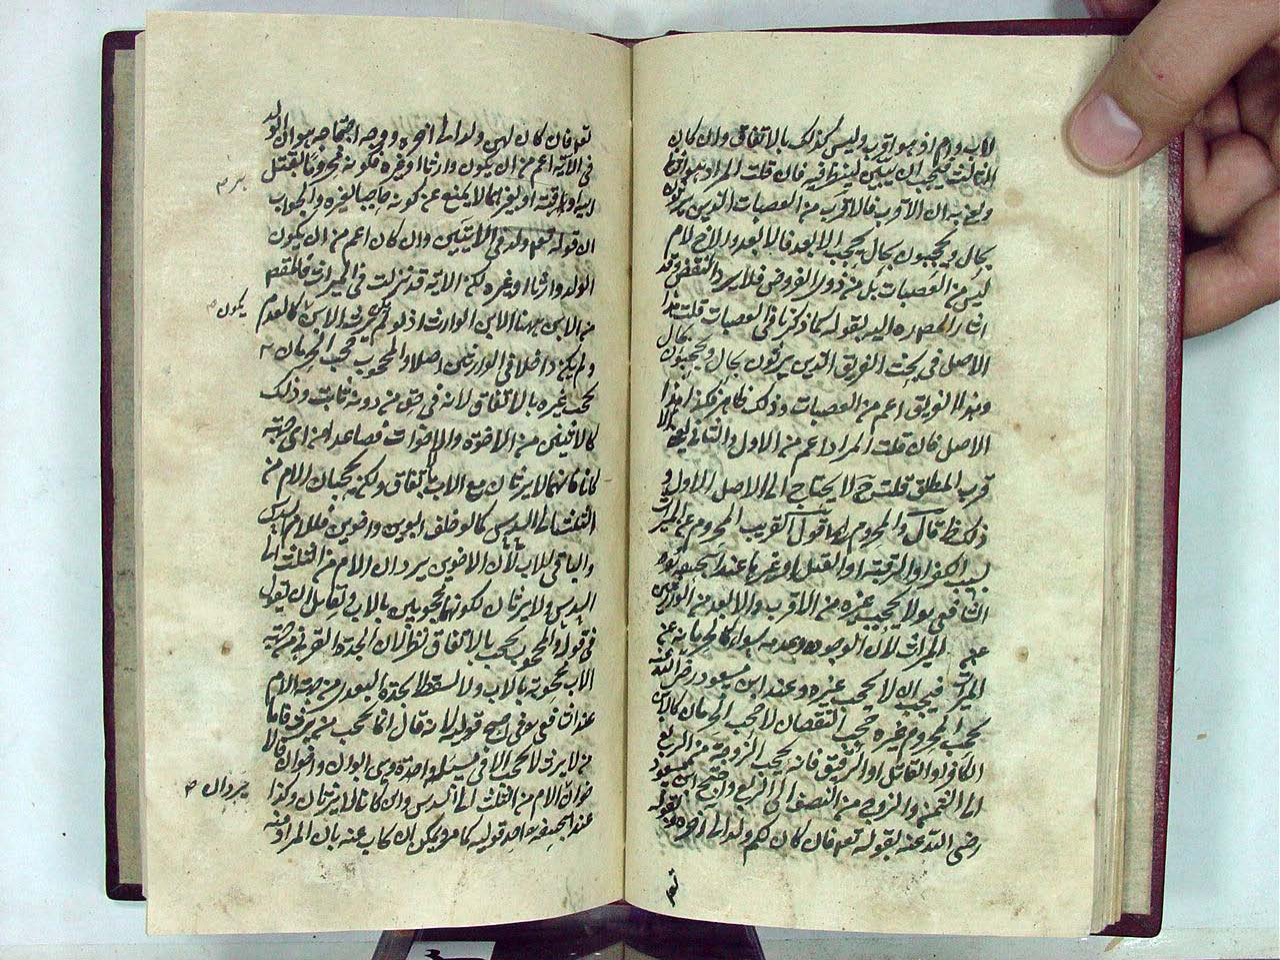 لاب وام اذ هو اقرب وليس كذلك بالاتفاق وان كان
الثالث فيجب ان يبين لينظر فيه فان قلت المراد هو
ويعني به ان الاقرب فالاقرب من العصبات الذين يرثون
بحال ويحجبون بحال يحجب الابعد فالابعد والاخ لام
ليس من العصبات بل من ذوى الفروض فلا يرد النقض وقد
اشار المصنف اليه بقوله كما ذكرنا في العصبات قلت هذا
الاصل في بحث الفريق الذين يرثون بحال ويحجبون بحال
وهذا الفريق اعم من العصبات وذلك ظاهر فكذا هذا
الاصل فان قلت المراد اعم من الاول والثاني
قرب المطلق قلت ح لا يحتاج الى الاصل الاول و
ذلك ظ قال والمحروم اقول القريب المحروم عن الميراث
بسبب الكفر او الرقية او القتل او غيرها عند ابيحنيفه
الشافعي لا يحجب غيره من الاقرب والابعد من الوارثين
عن الميراث لان وجوده وعدمه سواء كالحرمانه عن
الميراث فيجب ان لا يحجب غيره وعند ابن مسعود رضى الله عنه
يحجب المحروم غيره حجب النقصان لا حجب الحرمان كالابن
الكافر او القاتل او الرقيق فانه يحجب الزوجة من الربع
الى الثمن والزوج من النصف الى الربع واحتج ابن مسعود
رضى الله عنه بقوله تعم فان كان لكم ولد الى اخره وبقوله
تعم
تعم فان كان لهن ولد الى اخره ووجه احتجاجه هو ان الولد
في الاية اعم من ان يكون وارثا او غيره فكونه محروما بقتل
ابيه او رقيته او بغيرهما لا يمنع عن كونه حاجبا لغيره والجواب
ان قوله تعم ولد في الايتين وان كان اعم من ان يكون
الولد وارثا او غيره لكن الاية قد نزلت في الميراث فالمقصد
من الابن ههنا الابن الوارث اذ لو لم يرث الابن كالعدم
ولم يكن داخلا في الوارثين اصلا والمحجوب حجب الحرمان
يحجب غيره بالاتفاق لانه في حق من دونه ثابت وذلك
كالاثنين من الاخوة والاخوات فصاعدا من اي جهة
كانا فانهما لا يرثان مع الاب بالاتفاق ولكن يحجبان الام من
الثلث الى السدس كما لو خلف ابوين واخوين فللام السدس
والباقي للاب لان الاخوين يردان الام من الثلث الى
السدس ولا يرثان لكونهما محجوبين بالاب ولقائل ان يقول
في قوله والمحجوب يحجب بالاتفاق نظر لان الجدة القربى من جهة
الاب محجوبة بالاب ولا تسقط الجدة البعدى من جهة الام
عند الشافعي في اصح قوليه لانه قال انما يحجب من يرث فاما
من لا يرث لا يحجب الا في مسئلة واحدة وهي ابوان واخوان
اخوان الام من الثلث الى السدس وان كانا لا يرثان وكذا
عند ابيحنيفه في احد قوليه كما مر ويمكن ان يجاب عنه بان المراد منه
يكون
يردان